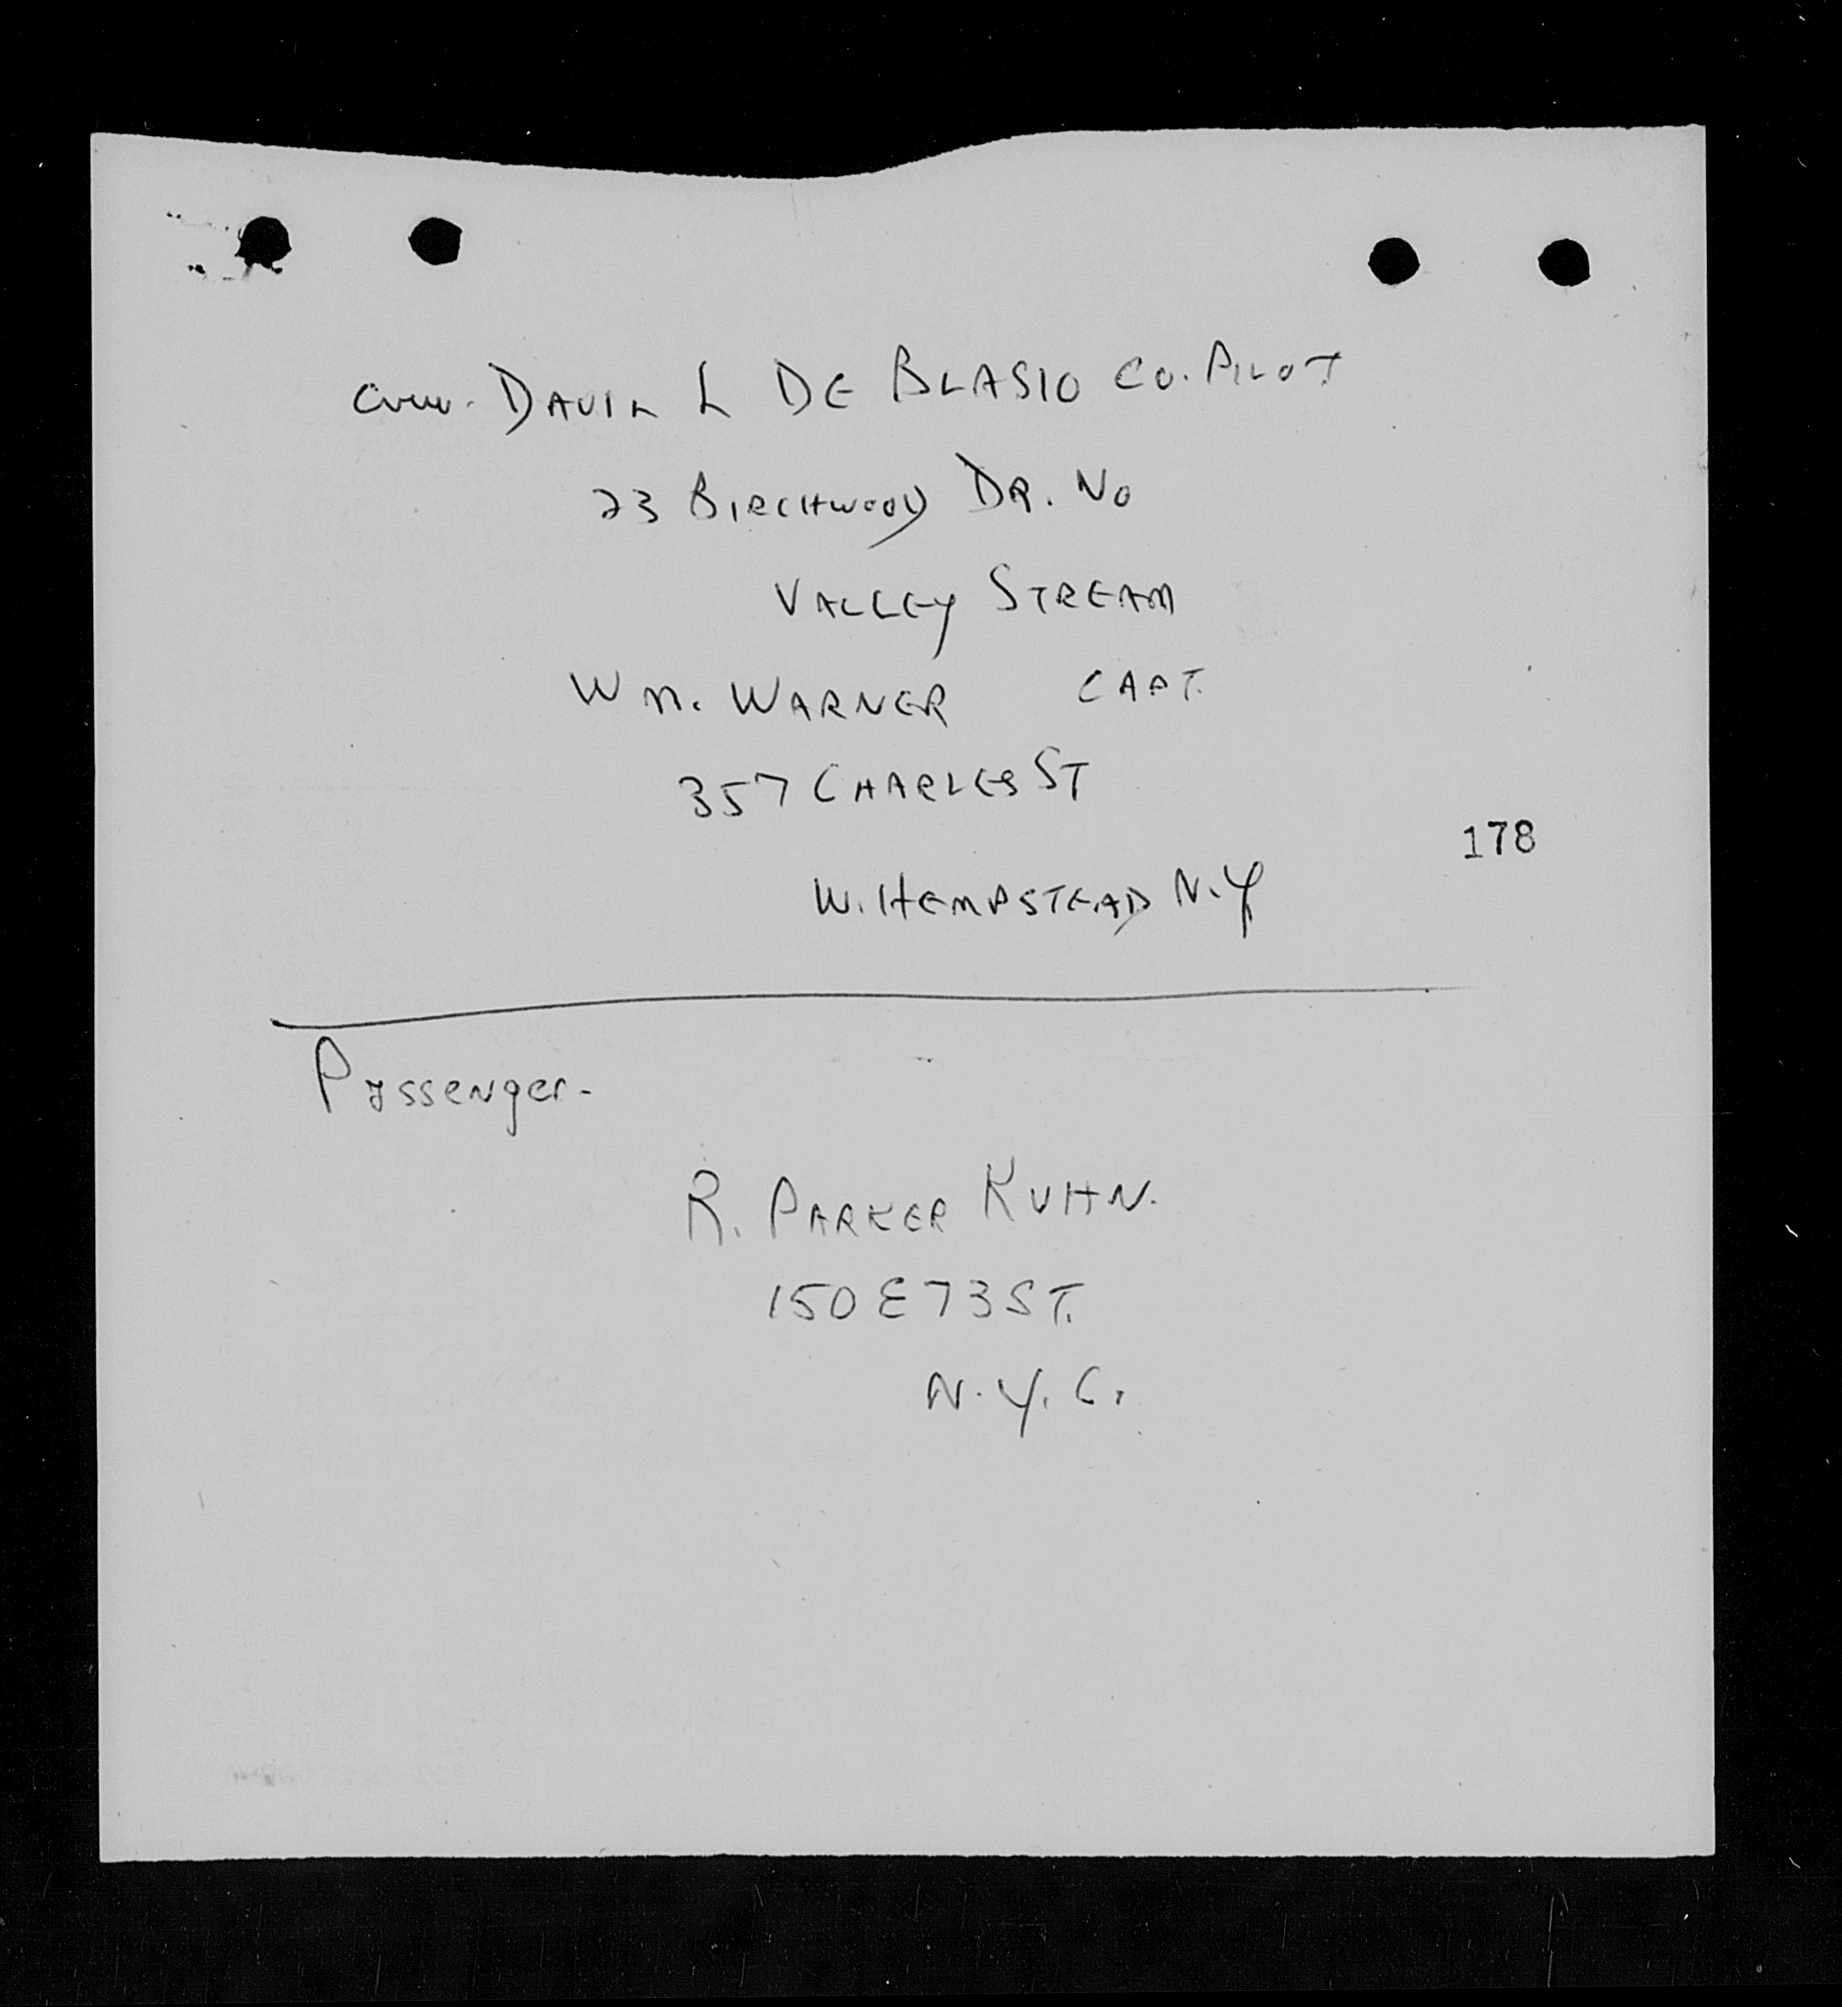 Crew. DAVID L DE BLASIO CO. PILOT
23 BIRCHWOOD DR. NO
VALLEY STREAM
WM. WARNER CAPT.
357 CHARLES ST
178
W. HEMPSTEAD N.Y
Passenger-
R. PARKER KUHN.
150 E 73 ST.
N.Y.C.